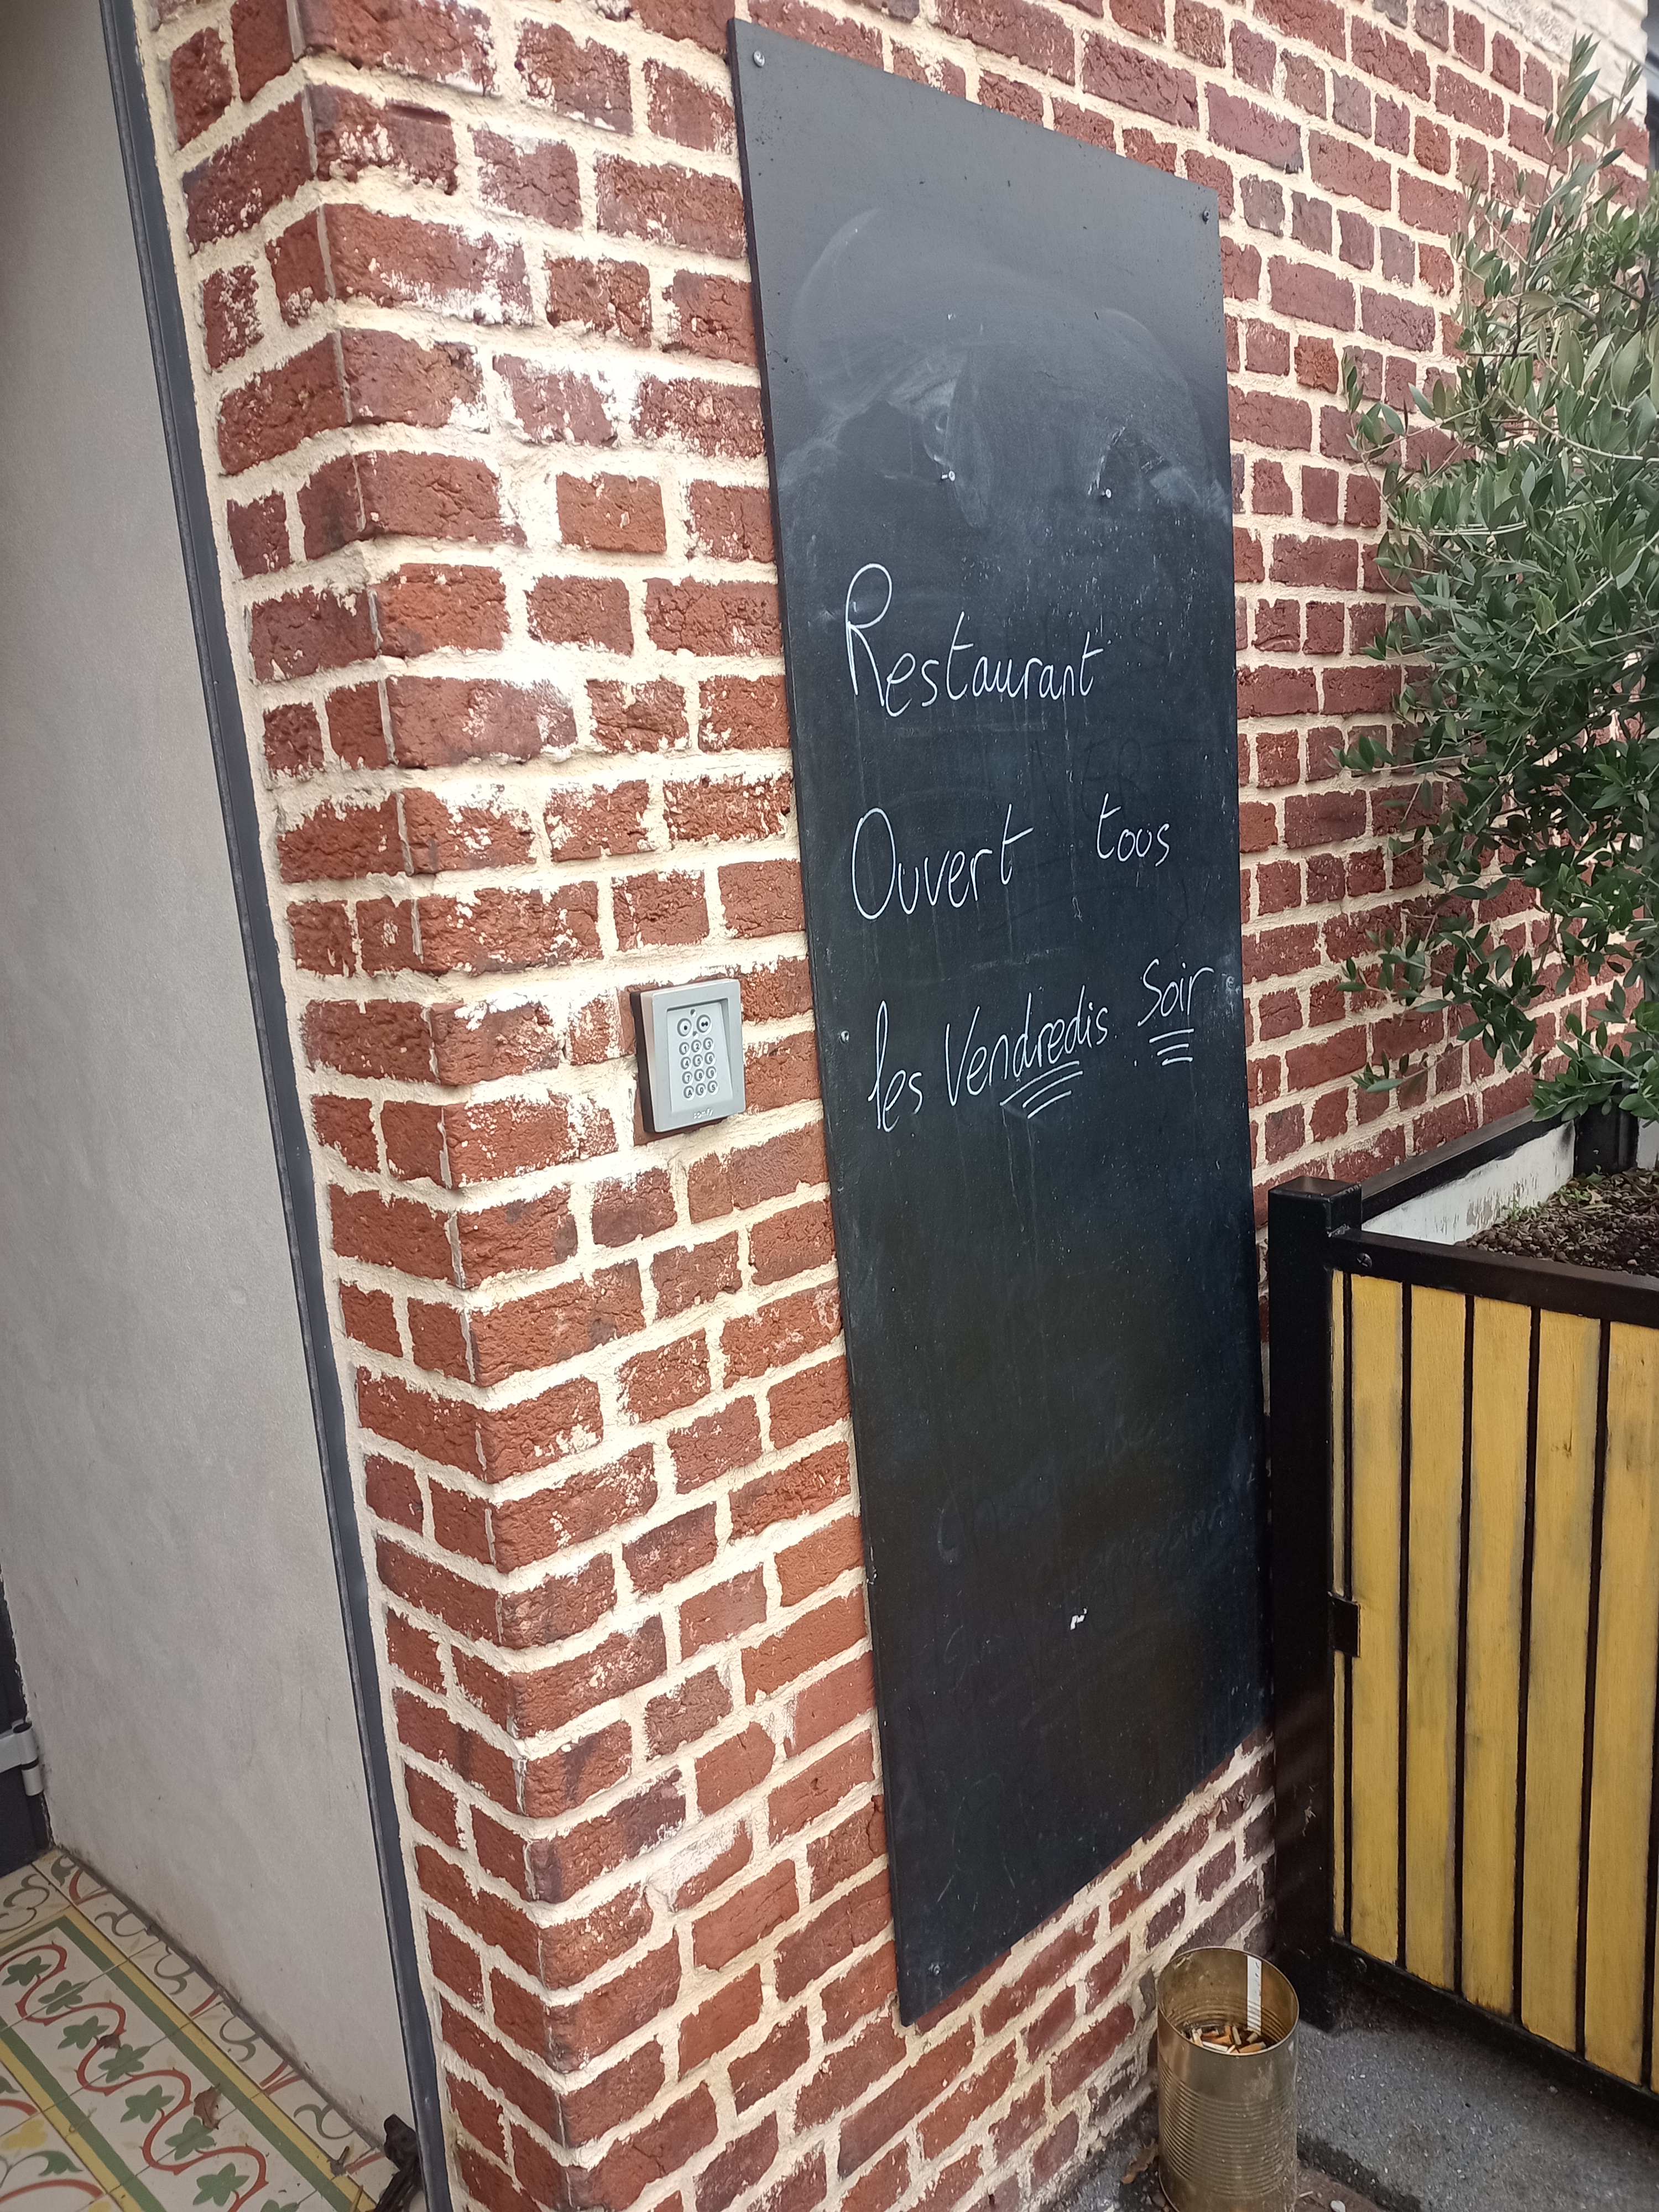 Restaurant
Ouvert tous
les Vendredis Soir
somfy